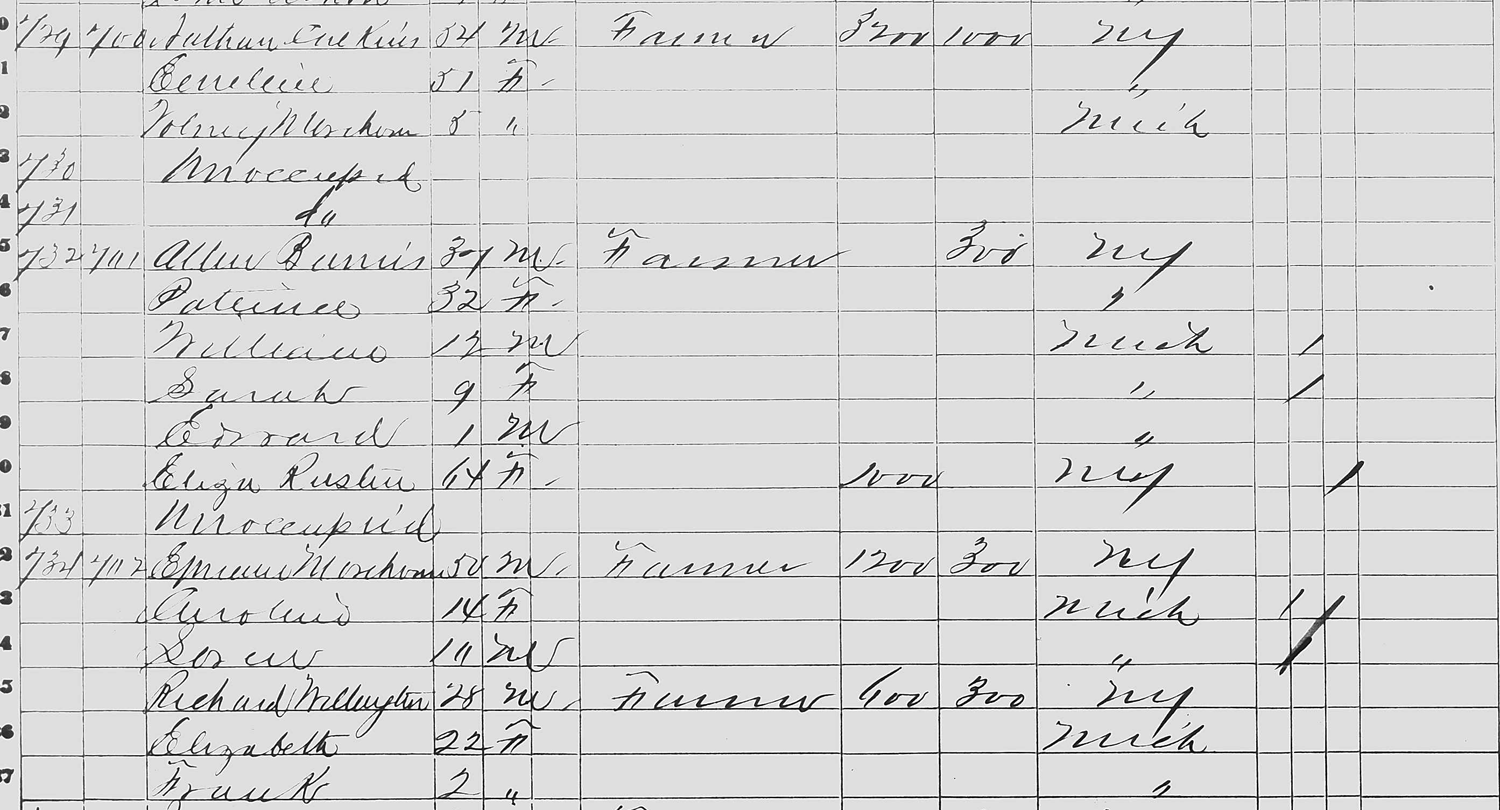 729 700 Nathan 54 M Farmer 3200 1000 NY
Emeline 51 F "
Volney Marcham 5 " Mich
730 Unoccupied
731 do
732 701 Allen Burris 37 M Farmer 300 NY
Patience 32 F "
William 12 M Mich 1
Sarah 9 F " 1
Edward 1 M "
Eliza Rusten 64 F 1000 NY 1
733 Unoccupied
734 702 50 M Farmer 1200 300 NY
14 F Mich 1 1
Loren 10 M " 1
Richard Willington 28 M Farmer 600 300 NY
Elizabeth 22 F Mich
Frank 2 " "